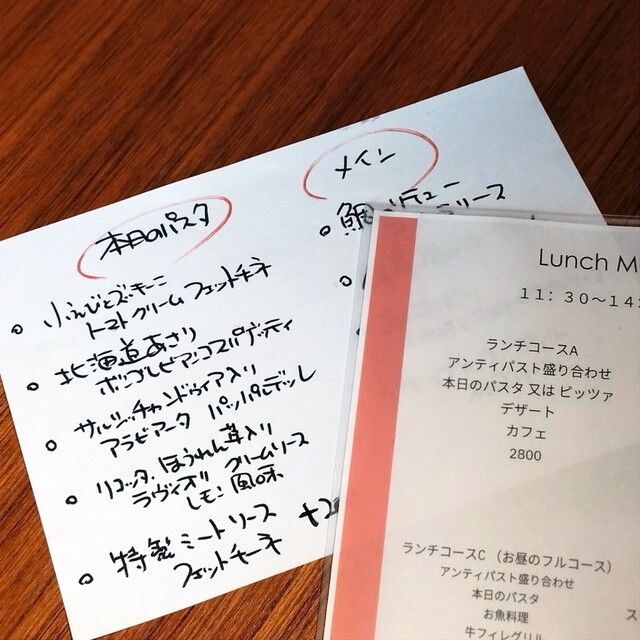 本日のパスタ
小えびとズッキーニ
トマトクリーム フェットチーネ
北海道あさり
ボンゴレビアンコスパゲッティ
サルシッチャ、ンドゥイア入り
アラビアータ パッパルデッレ
リコッタ、ほうれん草入り
ラヴィオリ クリームソース
レモン風味
特製ミートソース
フェットチーネ
メイン
鯛
ソース
Lunch M
11:30〜14:
ランチコースA
アンティパスト盛り合わせ
本日のパスタ 又は ピッツァ
デザート
カフェ
2800
ランチコースC（お昼のフルコース）
アンティパスト盛り合わせ
本日のパスタ
お魚料理
牛フィレグリル
ス